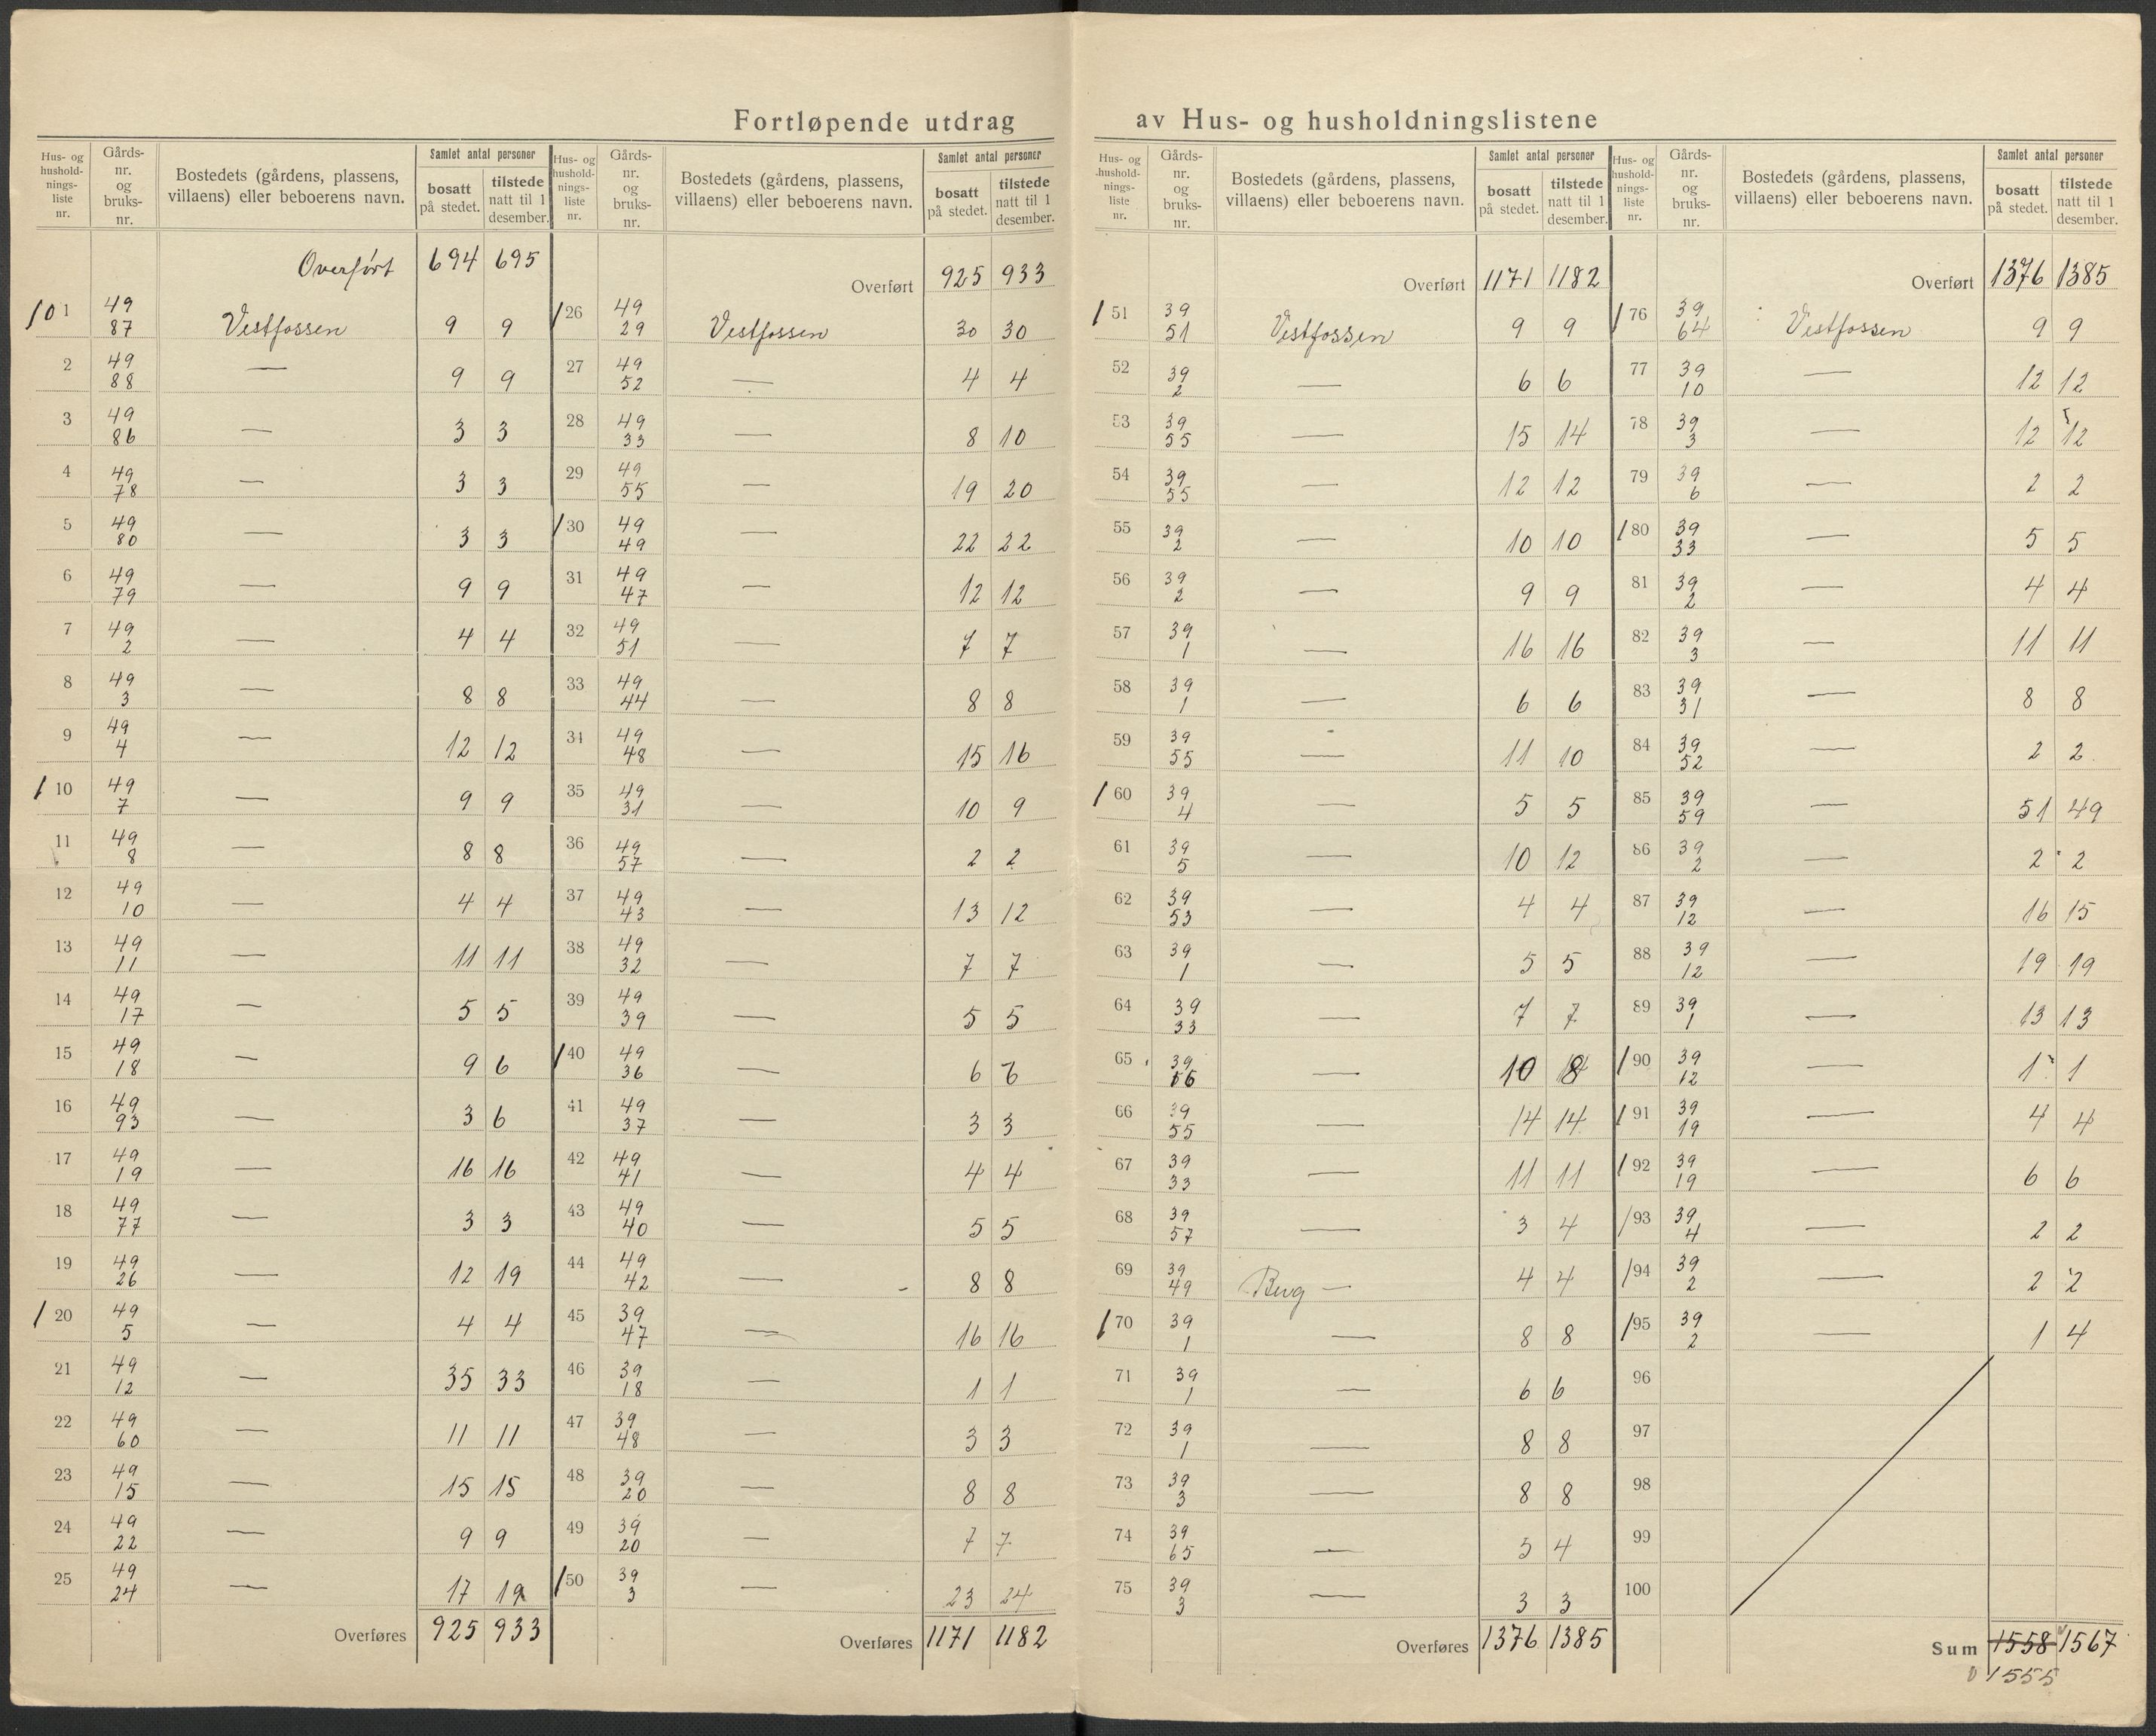 Fortløpende utdrag av Hus- og husholdningslistene
Hus- og husholdnings-liste nr. | Gårds-nr. og bruks-nr. | Bostedets (gårdens, plassens, villaens) eller beboerens navn. | Samlet antal personer bosatt på stedet. | tilstede natt til 1 desember.
Overført 694 695
101 49 87 Vestfossen 9 9
2 49 88 — 9 9
3 49 86 — 3 3
4 49 78 — 3 3
5 49 80 — 3 3
6 49 79 — 9 9
7 49 2 — 4 4
8 49 3 — 8 8
9 49 4 — 12 12
/10 49 7 — 9 9
11 49 8 — 8 8
12 49 10 — 4 4
13 49 11 — 11 11
14 49 17 — 5 5
15 49 18 — 9 6
16 49 93 — 3 6
17 49 19 — 16 16
18 49 77 — 3 3
19 49 26 — 12 19
/20 49 5 — 4 4
21 49 12 — 35 33
22 49 60 — 11 11
23 49 15 — 15 15
24 49 22 — 9 9
25 49 24 — 17 19
Overføres 925 933
Hus- og hushold-nings-liste nr. | Gårds-nr. og bruks-nr. | Bostedets (gårdens, plassens, villaens) eller beboerens navn. | Samlet antal personer bosatt på stedet. | tilstede natt til 1 desember.
Overført 925 933
/26 49 29 Vestfossen 30 30
27 49 52 — 4 4
28 49 33 — 8 10
29 49 55 — 19 20
/30 49 49 — 22 22
31 49 47 — 12 12
32 49 51 — 7 7
33 49 44 — 8 8
34 49 48 — 15 16
35 49 31 — 10 9
36 49 57 — 2 2
37 49 43 — 13 12
38 49 32 — 7 7
39 49 39 — 5 5
/40 49 36 — 6 6
41 49 37 — 3 3
42 49 41 — 4 4
43 49 40 — 5 5
44 49 42 — 8 8
45 39 47 — 16 16
46 39 18 — 1 1
47 39 48 — 3 3
48 39 20 — 8 8
49 39 20 — 7 7
/50 39 3 — 23 24
Overføres 1171 1182
Hus- og hushold-nings-liste nr. | Gårds-nr. og bruks-nr. | Bostedets (gårdens, plassens, villaens) eller beboerens navn. | Samlet antal personer bosatt på stedet. | tilstede natt til 1 desember.
Overført 1171 1182
/51 39 51 Vestfossen 9 9
52 39 2 — 6 6
53 39 55 — 15 14
54 39 55 — 12 12
55 39 2 — 10 10
56 39 2 — 9 9
57 39 1 — 16 16
58 39 1 — 6 6
59 39 55 — 11 10
/60 39 4 — 5 5
61 39 5 — 10 12
62 39 53 — 4 4
63 39 1 — 5 5
64 39 33 — 7 7
65 39 — 10
66 39 55 — 14 14
67 39 33 — 11 11
68 39 57 — 3 4
69 39 49 Berg — 4 4
/70 39 1 — 8 8
71 39 1 — 6 6
72 39 1 — 8 8
73 39 3 — 8 8
74 39 65 — 5 4
75 39 3 — 3 3
Overføres 1376 1385
Hus- og hushold-nings-liste nr. | Gårds-nr. og bruks-nr. | Bostedets (gårdens, plassens, villaens) eller beboerens navn. | Samlet antal personer bosatt på stedet. | tilstede natt til 1 desember.
Overført 1376 1385
/76 39 64 Vestfossen 9 9
77 39 10 — 12 12
78 39 3 — 12 12
79 39 6 — 2 2
/80 39 33 — 5 5
81 39 2 — 4 4
82 39 3 — 11 11
83 39 31 — 8 8
84 39 52 — 2 2
85 39 59 — 51 49
86 39 2 — 2 2
87 39 12 — 16 15
88 39 12 — 19 19
89 39 1 — 13 13
/90 39 12 — 1 1
/91 39 19 — 4 4
/92 39 19 — 6 6
/93 39 4 — 2 2
/94 39 2 — 2 2
/95 39 2 — 1 4
96
97
98
99
100
Sum 1558 1567
1555